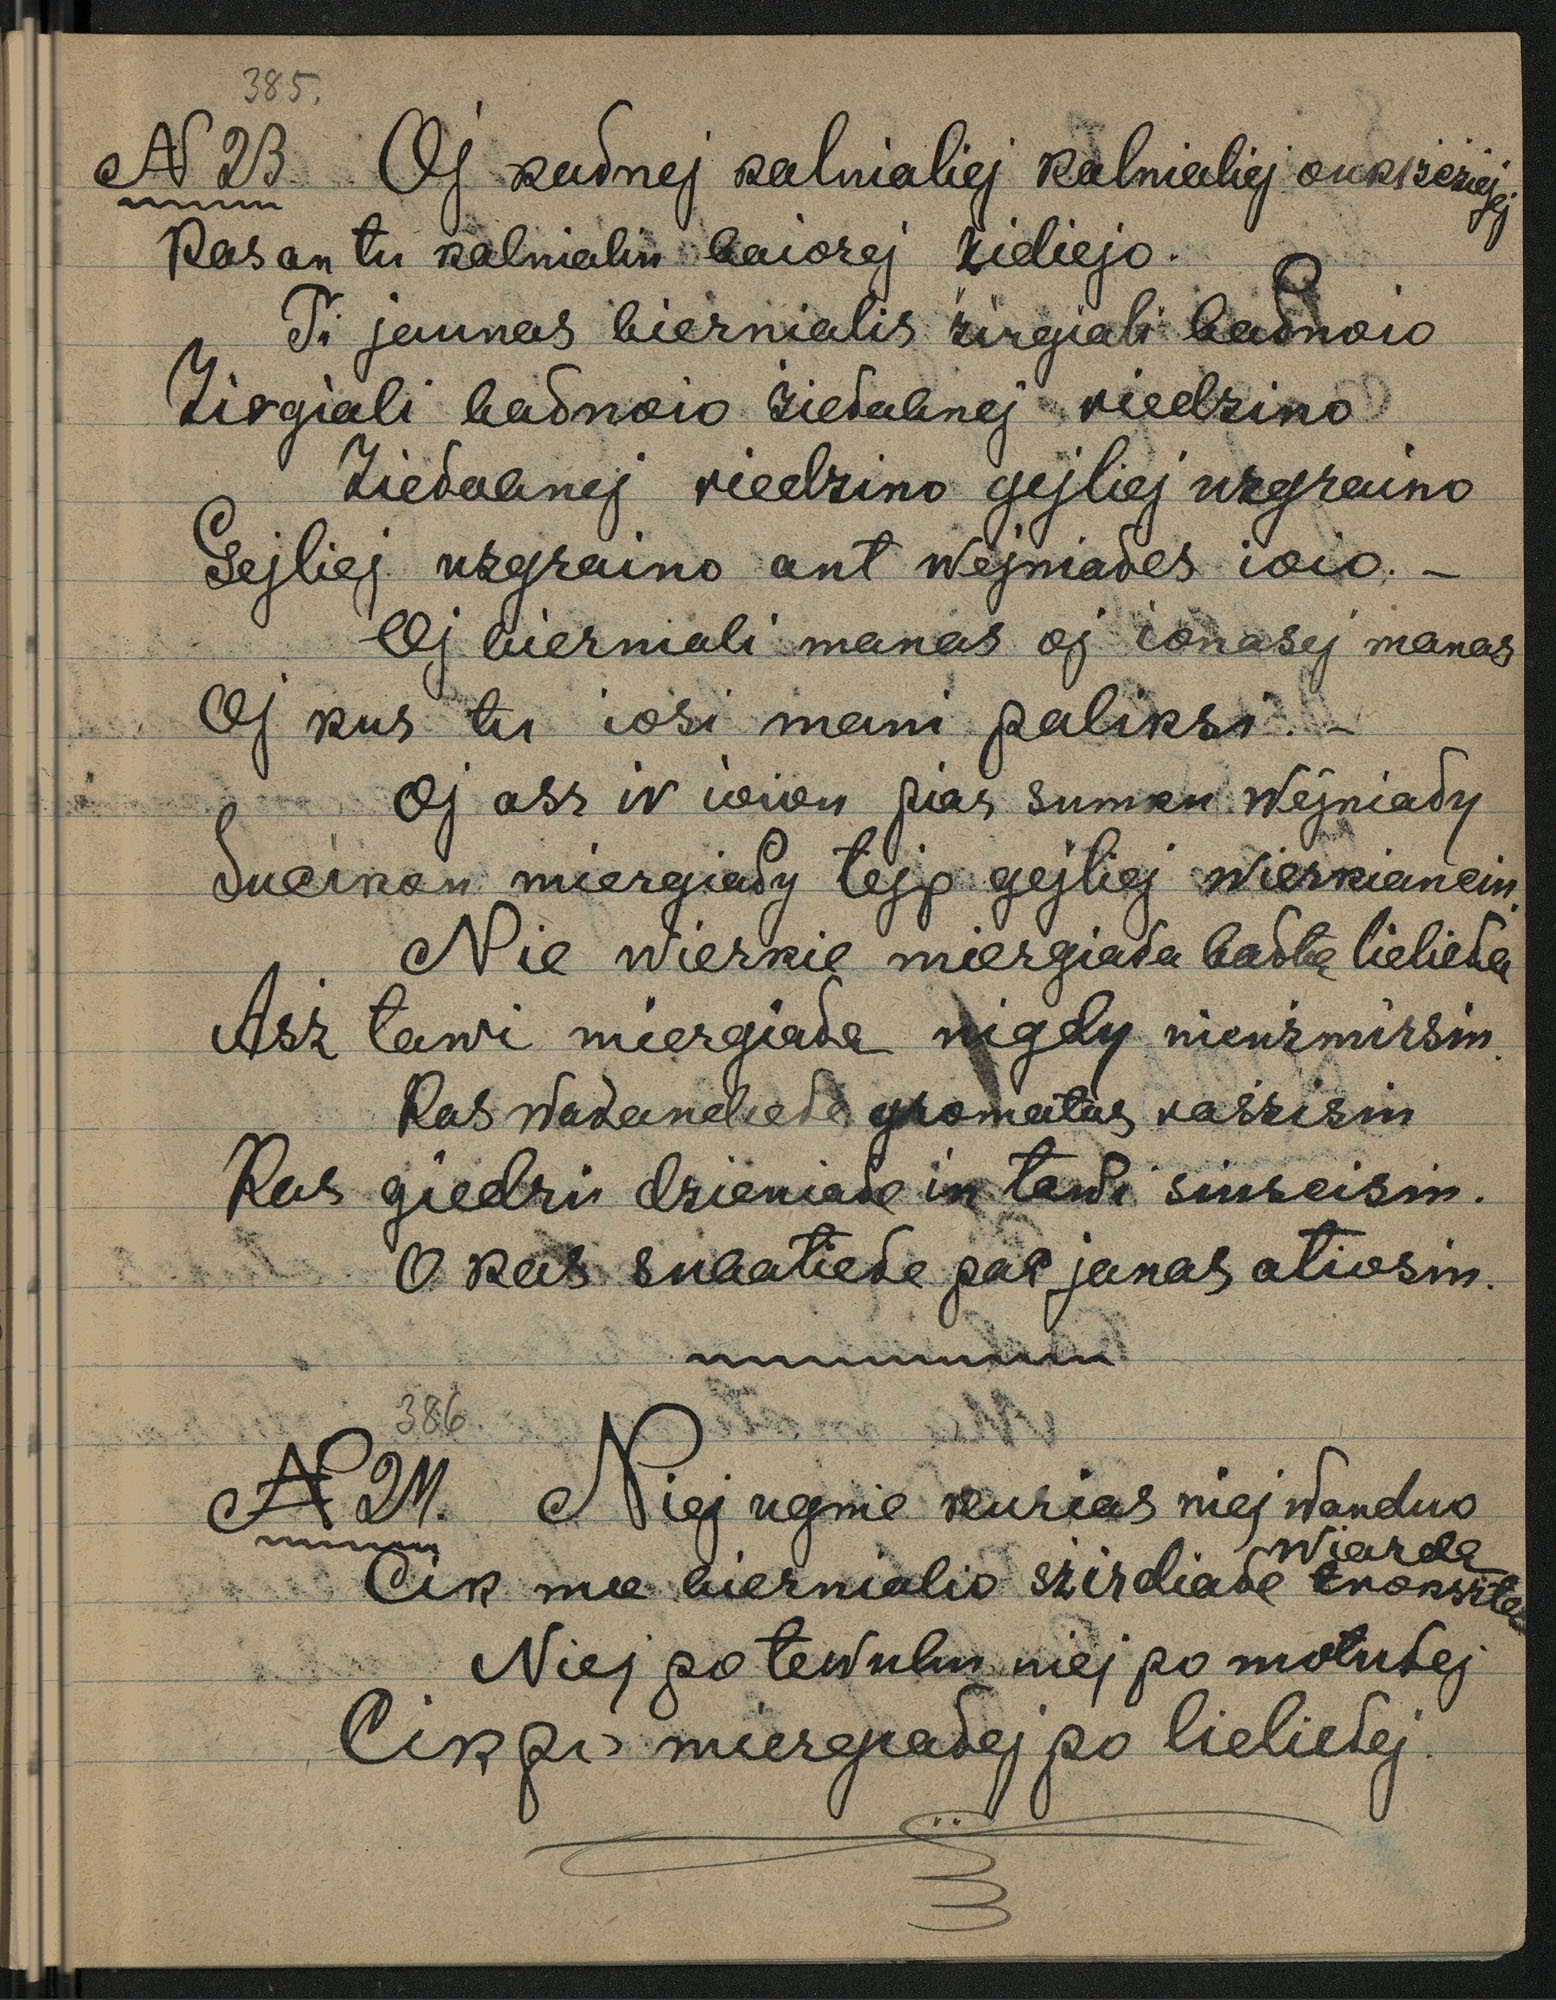 385.
N 23 Oj kałnej kalnialiej kalnialiej aukszcziejej
Kas an tu kalnialiu baiorej židiejo.
Ti jaunas biernialis žirgiali bałnoio
Žirgiali bałnoio žiedabnej riedzino
Žiedabnej riedzino gejliej uzgraino
Gejliej uzgraino ant wejniałes ioio. –
Oj bierniali manas oj ionasej manas
Oj kus tu iosi mani paliksi. –
Oj asz ir ioiou pias sunku wejniały
Sucikou miergiały tejp gejliej wierkiancin.
Nie wierkie miergiała bałta lieliela
Asz tawi miergiała nigdy nieuzmirsin.
Kas gromatas raszisin
Kas giedzin dzieniałe in tawi sinseisin.
O kas subatiełe pas janas atiosin.
386.
N 24. Niej ugnie kurias niej wanduo
wiarda
Cik mie biernialio szirdiałe trokszta
Niej po tewuliu niej po motułej
Cik po miergiałej po lieliełej.